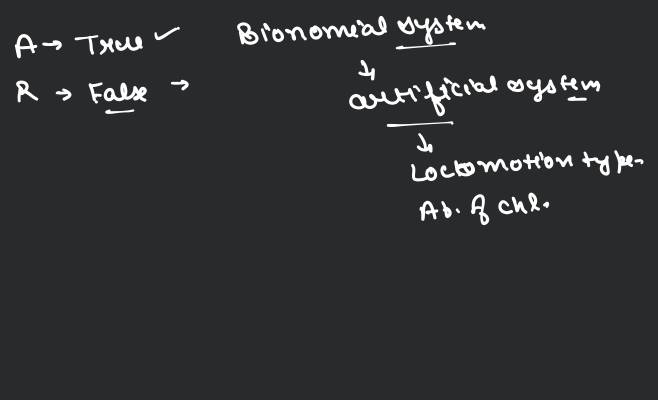 A → True ✓ Bionomial system
R → False →
↓
artificial system
↓
Locktomotion type.
Ab. of chl.